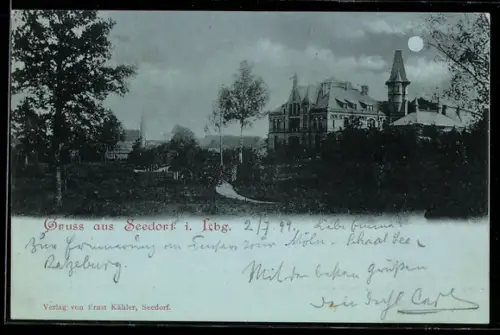 Gruss aus Seedorf i. Lbg.
2/7 99. Liebe Emma!
Zur Erinnerung an Touren von Mölln - Schaal See -
Ratzeburg
Mit den besten Grüßen
Dein Carl
Verlag von Ernst Kähler, Seedorf.